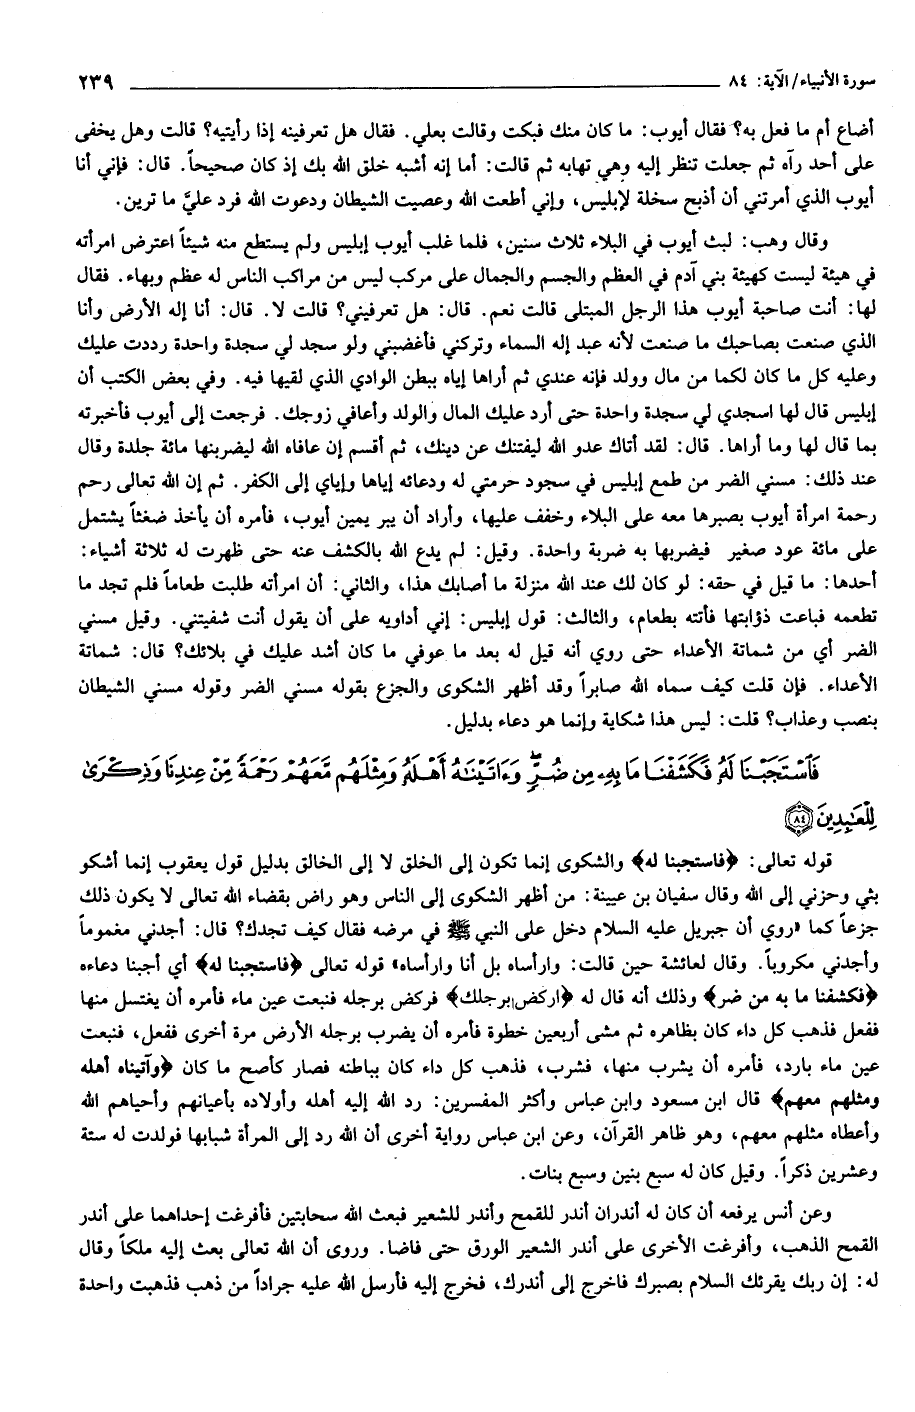 سورة الأنبياء/ الآية: ٨٤ ٢٣٩
أضاع أم ما فعل به؟ فقال أيوب: ما كان منك فبكت وقالت بعلي. فقال هل تعرفينه إذا رأيتيه؟ قالت وهل يخفى
على أحد رآه ثم جعلت تنظر إليه وهي تهابه ثم قالت: أما إنه أشبه خلق الله بك إذ كان صحيحاً. قال: فإني أنا
أيوب الذي أمرتني أن أذبح سخلة لإبليس، وإني أطعت الله وعصيت الشيطان ودعوت الله فرد عليَّ ما ترين.
وقال وهب: لبث أيوب في البلاء ثلاث سنين، فلما غلب أيوب إبليس ولم يستطع منه شيئاً اعترض امرأته
في هيئة ليست كهيئة بني آدم في العظم والجسم والجمال على مركب ليس من مراكب الناس له عظم وبهاء. فقال
لها: أنت صاحبة أيوب هذا الرجل المبتلى قالت نعم. قال: هل تعرفيني؟ قالت لا. قال: أنا إله الأرض وأنا
الذي صنعت بصاحبك ما صنعت لأنه عبد إله السماء وتركني فأغضبني ولو سجد لي سجدة واحدة رددت عليك
وعليه كل ما كان لكما من مال وولد فإنه عندي ثم أراها إياه ببطن الوادي الذي لقيها فيه. وفي بعض الكتب أن
إبليس قال لها اسجدي لي سجدة واحدة حتى أرد عليك المال والولد وأعافي زوجك. فرجعت إلى أيوب فأخبرته
بما قال لها وما أراها. قال: لقد أتاك عدو الله ليفتنك عن دينك، ثم أقسم إن عافاه الله ليضربنها مائة جلدة وقال
عند ذلك: مسني الضر من طمع إبليس في سجود حرمتي له ودعائه إياها وإياي إلى الكفر. ثم إن الله تعالى رحم
رحمة امرأة أيوب بصبرها معه على البلاء وخفف عليها، وأراد أن يبر يمين أيوب، فأمره أن يأخذ ضغثاً يشتمل
على مائة عود صغير فيضربها به ضربة واحدة. وقيل: لم يدع الله بالكشف عنه حتى ظهرت له ثلاثة أشياء:
أحدها: ما قيل في حقه: لو كان لك عند الله منزلة ما أصابك هذا، والثاني: أن امرأته طلبت طعاماً فلم تجد ما
تطعمه فباعت ذؤابتها فأتته بطعام، والثالث: قول إبليس: إني أداويه على أن يقول أنت شفيتني. وقيل مسني
الضر أي من شماتة الأعداء حتى روي أنه قيل له بعد ما عوفي ما كان أشد عليك في بلائك؟ قال: شماتة
الأعداء. فإن قلت كيف سماه الله صابراً وقد أظهر الشكوى والجزع بقوله مسني الضر وقوله مسني الشيطان
بنصب وعذاب؟ قلت: ليس هذا شكاية وإنما هو دعاء بدليل.
فَٱسْتَجَبْنَا لَهُۥ فَكَشَفْنَا مَا بِهِۦ مِن ضُرٍّۖ وَءَاتَيْنَٰهُ أَهْلَهُۥ وَمِثْلَهُم مَّعَهُمْ رَحْمَةً مِّنْ عِندِنَا وَذِكْرَىٰ
لِلْعَٰبِدِينَ ﴿٨٤﴾
قوله تعالى: ﴿فاستجبنا له﴾ والشكوى إنما تكون إلى الخلق لا إلى الخالق بدليل قول يعقوب إنما أشكو
بثي وحزني إلى الله وقال سفيان بن عيينة: من أظهر الشكوى إلى الناس وهو راض بقضاء الله تعالى لا يكون ذلك
جزعاً كما «روي أن جبريل عليه السلام دخل على النبي ﷺ في مرضه فقال كيف تجدك؟ قال: أجدني مغموماً
وأجدني مكروباً. وقال لعائشة حين قالت: وارأساه بل أنا وارأساه» قوله تعالى ﴿فاستجبنا له﴾ أي أجبنا دعاءه
﴿فكشفنا ما به من ضر﴾ وذلك أنه قال له ﴿اركض برجلك﴾ فركض برجله فنبعت عين ماء فأمره أن يغتسل منها
ففعل فذهب كل داء كان بظاهره ثم مشى أربعين خطوة فأمره أن يضرب برجله الأرض مرة أخرى ففعل، فنبعت
عين ماء بارد، فأمره أن يشرب منها، فشرب، فذهب كل داء كان بباطنه فصار كأصح ما كان ﴿وآتيناه أهله
ومثلهم معهم﴾ قال ابن مسعود وابن عباس وأكثر المفسرين: رد الله إليه أهله وأولاده بأعيانهم وأحياهم الله
وأعطاه مثلهم معهم، وهو ظاهر القرآن، وعن ابن عباس رواية أخرى أن الله رد إلى المرأة شبابها فولدت له ستة
وعشرين ذكراً. وقيل كان له سبع بنين وسبع بنات.
وعن أنس يرفعه أن كان له أندران أندر للقمح وأندر للشعير فبعث الله سحابتين فأفرغت إحداهما على أندر
القمح الذهب، وأفرغت الأخرى على أندر الشعير الورق حتى فاضا. وروى أن الله تعالى بعث إليه ملكاً وقال
له: إن ربك يقرئك السلام بصبرك فاخرج إلى أندرك، فخرج إليه فأرسل الله عليه جراداً من ذهب فذهبت واحدة